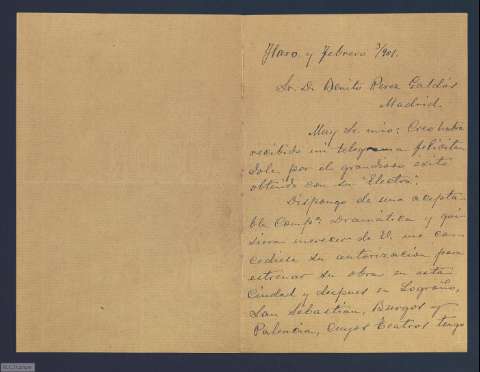 Haro y Febrero 7/901.
Sr. Dn. Benito Perez Galdós
Madrid.
Muy Sr. mio: Creo habra
recibido mi telegrama felicitan
dole por el grandioso exito
obtenido con su "Electra".
Dispongo de una acepta-
ble Compª. Dramática y qui
siera merecer de V. me con
cediese su autorizacion para
estrenar su obra en esta
Ciudad y despues en Logroño,
San Sebastian, Burgos y
Palencia, cuyos teatros tengo